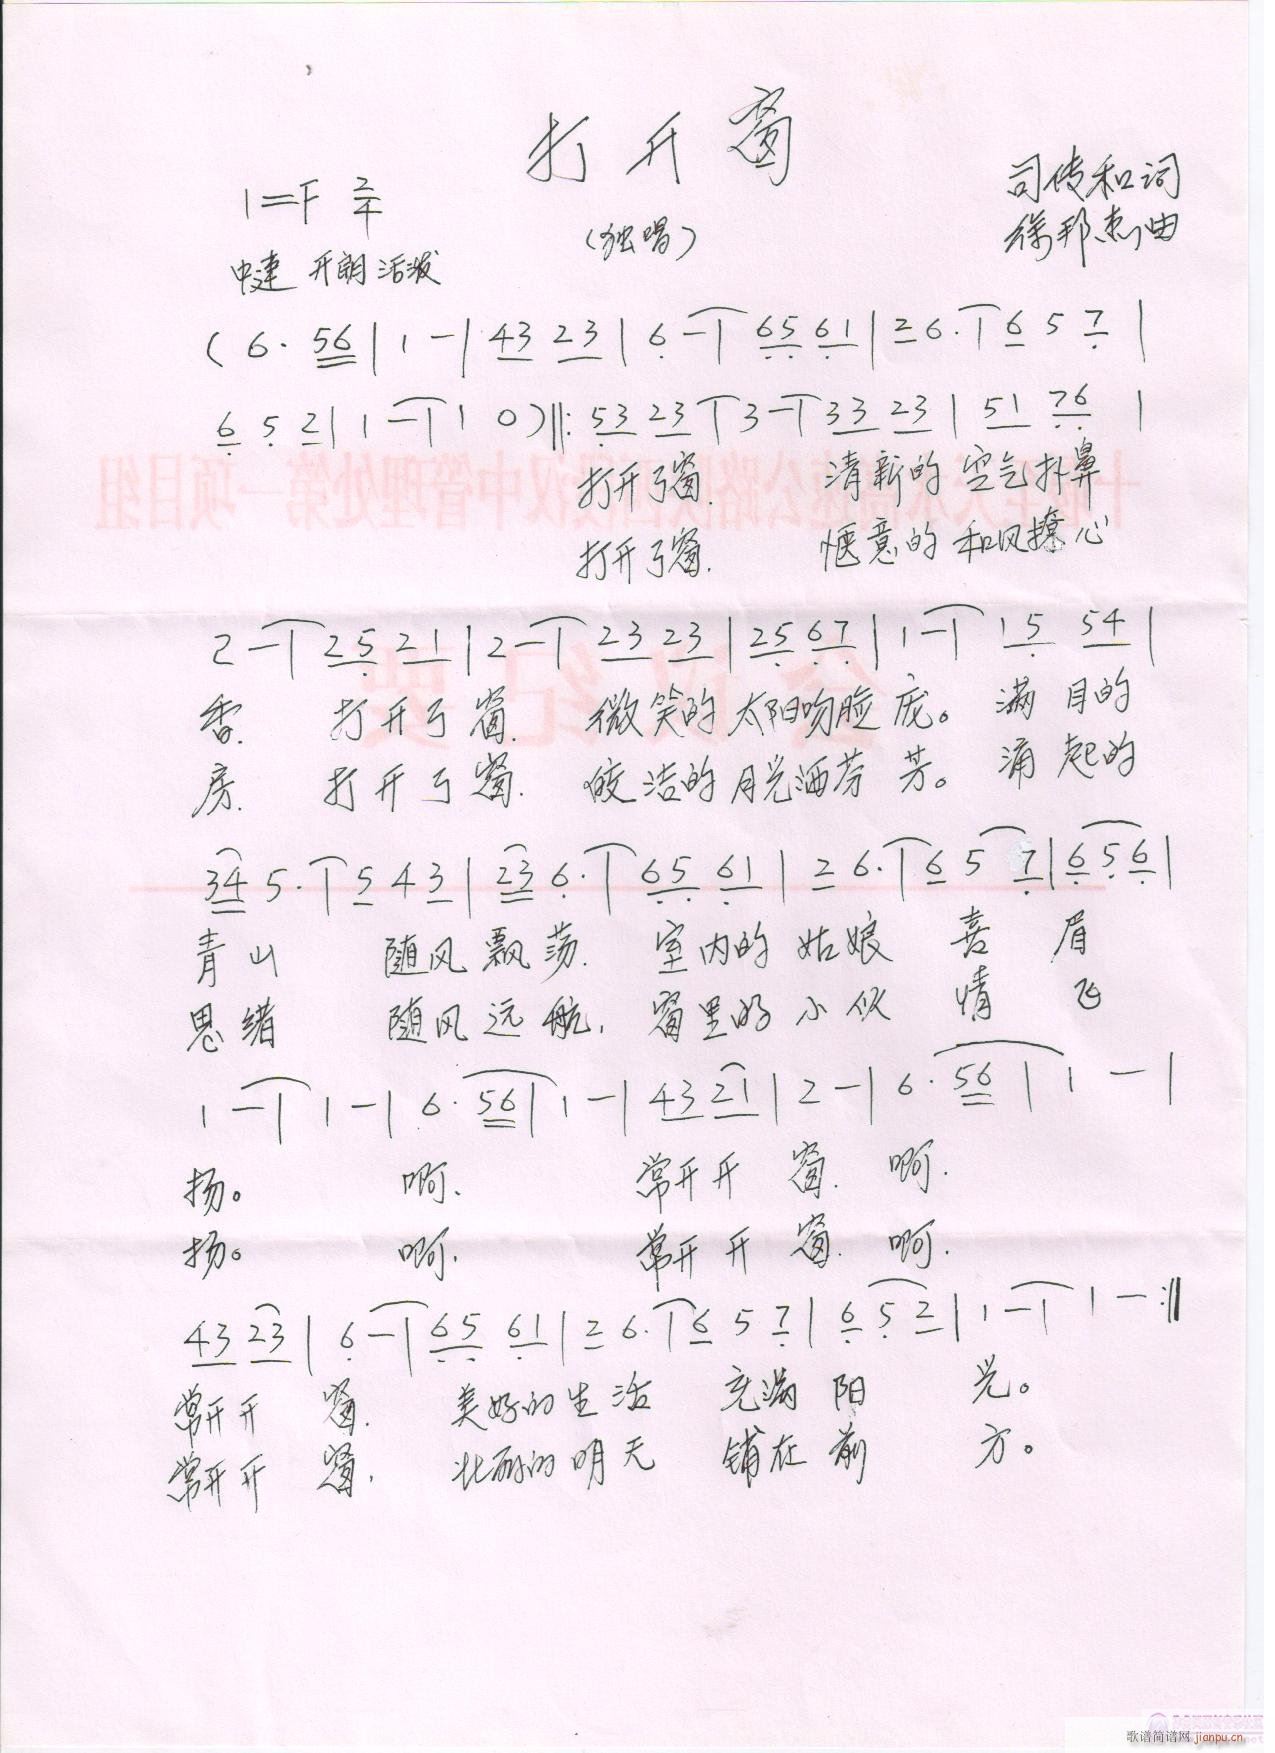 打开窗
1=F 2/4
(独唱)
司传和词
徐邦杰曲
中速 开朗活泼
( 6· 56 | 1 - | 43 23 | 6 - | 65 61 | 2 6· | 6 5 7 |
6 5 2 | 1 - | 1 0 ) ‖: 53 23 | 3 - | 33 23 | 51 76 |
打开了窗. 清新的空气扑鼻
打开了窗. 惬意的和风撩心
2 - | 25 21 | 2 - | 23 23 | 25 67 | 1 - | 15 54 |
香. 打开了窗. 微笑的太阳吻脸庞。满目的
房. 打开了窗. 皎洁的月光洒芬芳。涌起的
34 5· | 5 4 3 | 23 6· | 65 61 | 2 6· | 6 5 7 | 6 5 6 |
青山 随风飘荡. 室内的姑娘喜眉
思绪 随风远航, 窗里的小伙情飞
1 - | 1 - | 6· 56 | 1 - | 43 21 | 2 - | 6· 56 | 1 - |
扬。 啊. 常开开窗. 啊.
扬。 啊. 常开开窗. 啊.
43 23 | 6 - | 65 61 | 2 6· | 6 5 7 | 6 5 2 | 1 - | 1 - :‖
常开开窗. 美好的生活充满阳光。
常开开窗, 壮丽的明天铺在前方。
歌谱简谱网 jianpu.cn